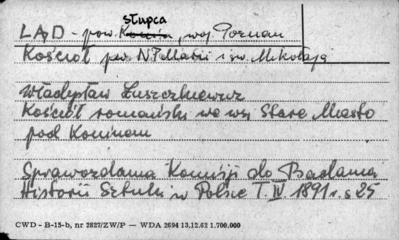 słupca
LĄD - pow. Konin, woj. Poznań
Kościół pw. N.P. Marii i św. Mikołaja
Władysław Łuszczkiewicz
Kościół romański we wsi Stare Miasto
pod Koninem
Sprawozdania Komisji do Badania
Historii Sztuki w Polsce T. IV 1891 r. s 25
CWD - B-15-b, nr 2827/ZW/P — WDA 2694 13.12.62 1.700.000